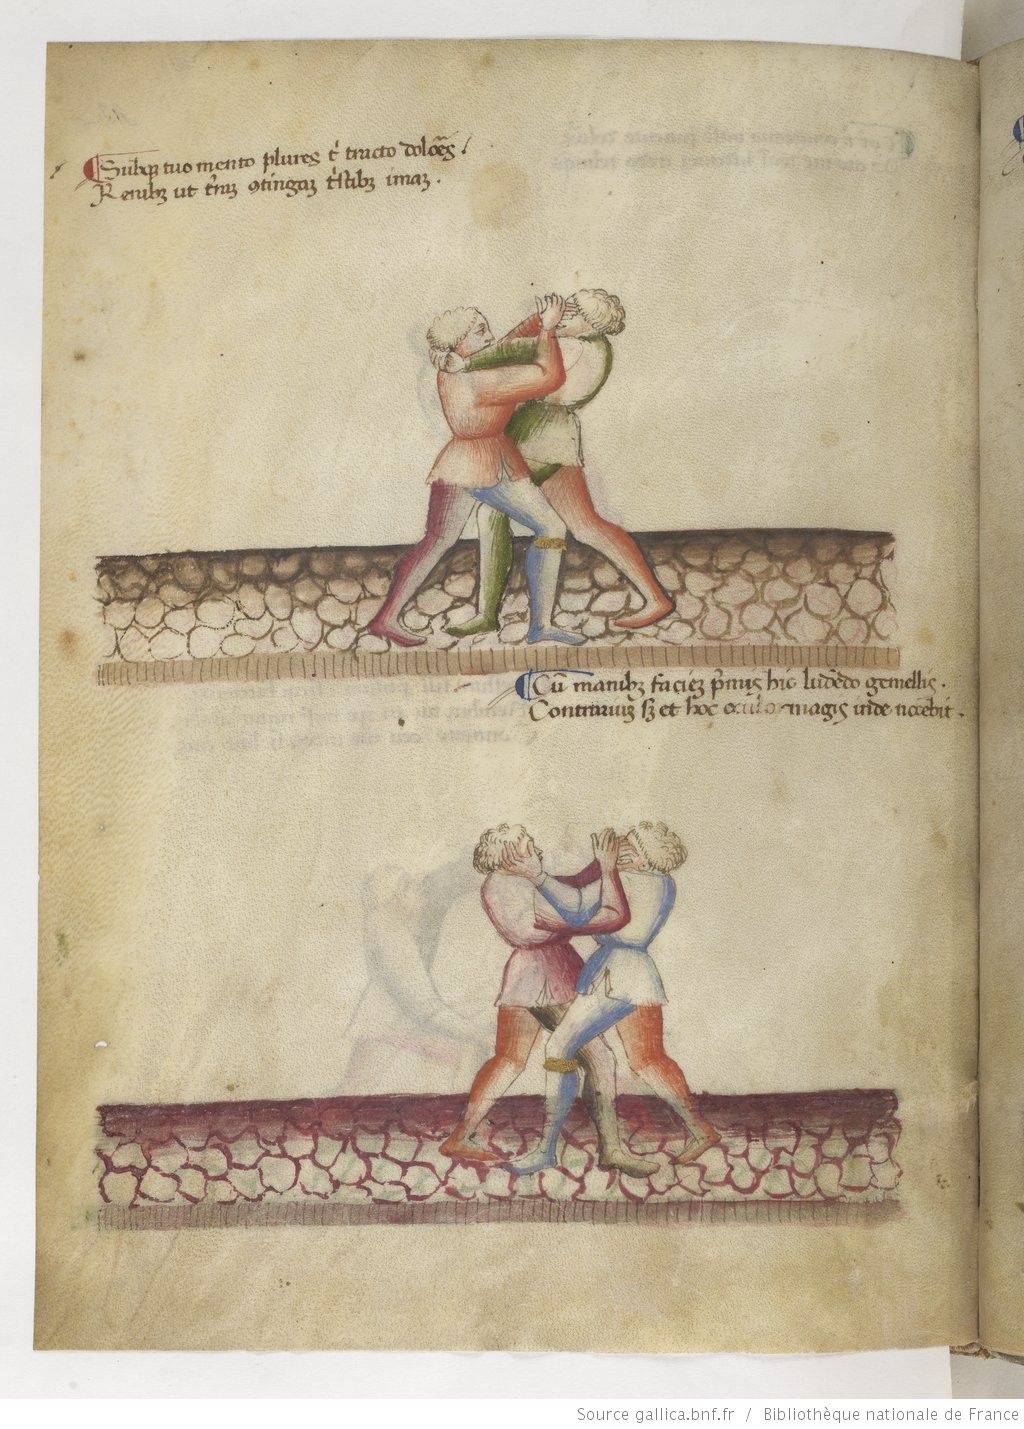 Subqꝫ tuo mento plures tͥ tracto doloẽs.
Renibꝫ ut t̃rıaꝫ ꝯtingaꝫ tͥstibꝫ imaꝫ.
Cũ manibꝫ facieꝫ p̃mis hic ludẽdo gemellis.
Contrariuꝫ sꝫ et hoc oculo magis inde nocebit.
Source gallica.bnf.fr / Bibliothèque nationale de France